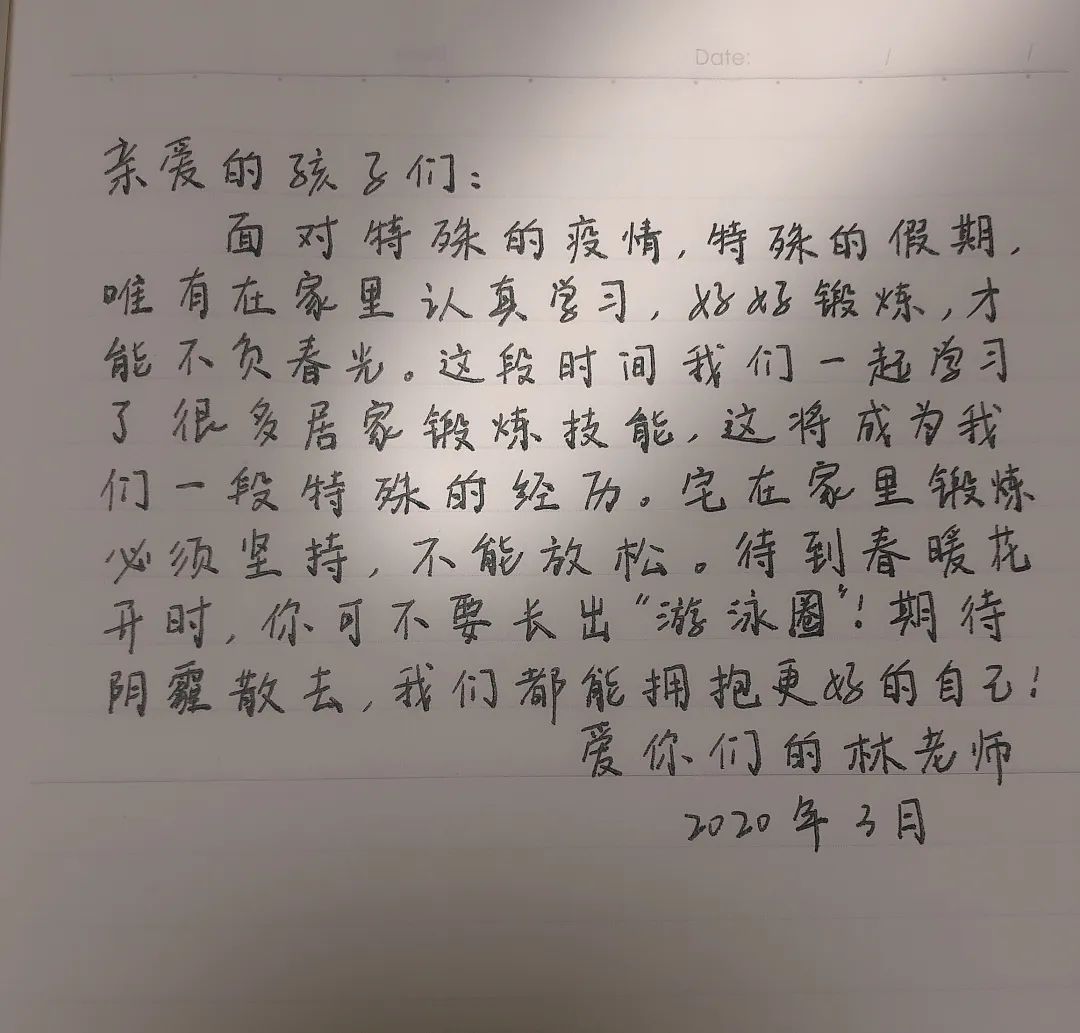 Date: / /
亲爱的孩子们：
面对特殊的疫情，特殊的假期，
唯有在家里认真学习，好好锻炼，才
能不负春光。这段时间我们一起学习
了很多居家锻炼技能，这将成为我
们一段特殊的经历。宅在家里锻炼
必须坚持，不能放松。待到春暖花
开时，你可不要长出“游泳圈”！期待
阴霾散去，我们都能拥抱更好的自己！
爱你们的林老师
2020年3月